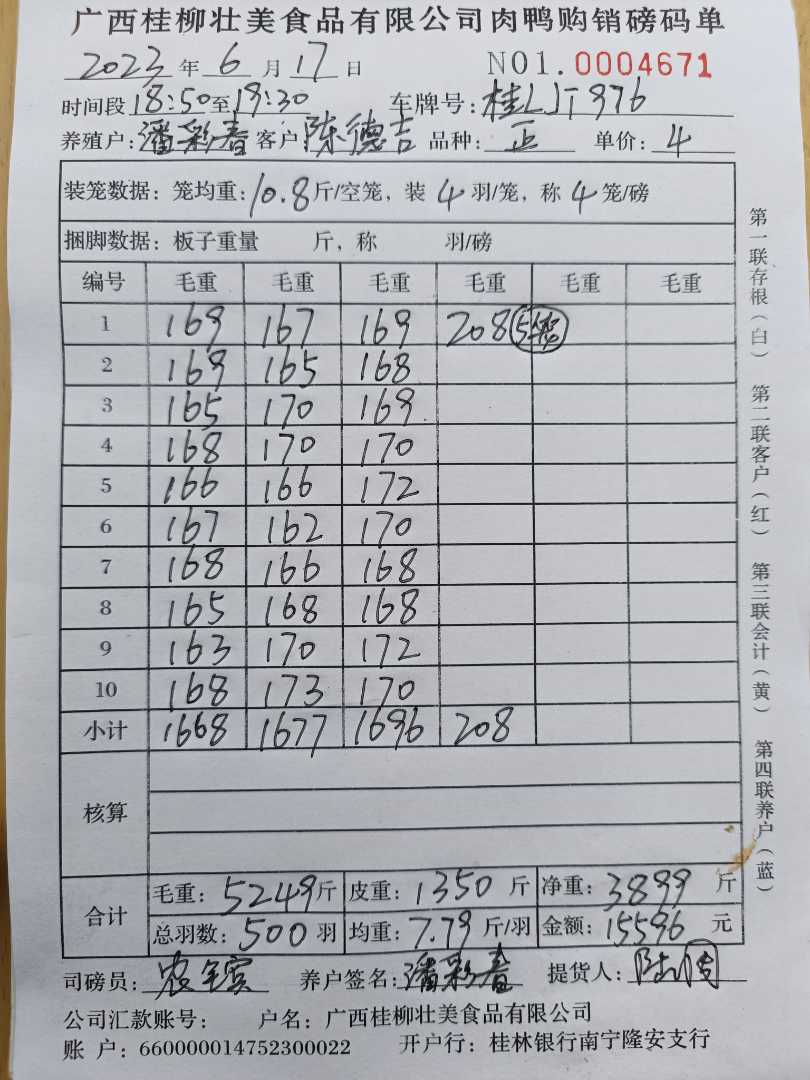 广西桂柳壮美食品有限公司肉鸭购销磅码单
2023 年 6 月 17 日 NO1. 0004671
时间段 18:50 至 19:30 车牌号: 桂LJT976
养殖户: 潘彩春 客户 陈德吉 品种: 正 单价: 4
装笼数据: 笼均重: 10.8 斤/空笼, 装 4 羽/笼, 称 4 笼/磅
捆脚数据: 板子重量 斤, 称 羽/磅
编号 毛重 毛重 毛重 毛重 毛重 毛重
1 169 167 169 208 5笼
2 169 165 168
3 165 170 169
4 168 170 170
5 166 166 172
6 167 162 170
7 168 166 168
8 165 168 168
9 163 170 172
10 168 173 170
小计 1668 1677 1696 208
核算
合计
毛重: 5249 斤 皮重: 1350 斤 净重: 3899 斤
总羽数: 500 羽 均重: 7.79 斤/羽 金额: 15596 元
司磅员: 养户签名: 潘彩春 提货人:
公司汇款账号: 户名: 广西桂柳壮美食品有限公司
账 户: 660000014752300022 开户行: 桂林银行南宁隆安支行
第一联存根(白) 第二联客户(红) 第三联会计(黄) 第四联养户(蓝)